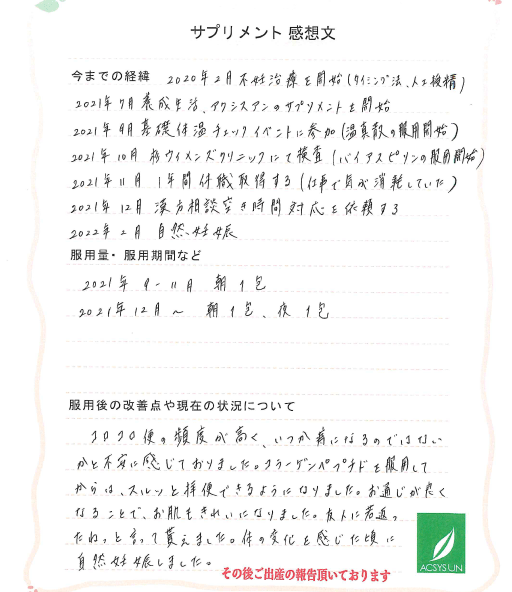 サプリメント 感想文
今までの経緯 2020年2月不妊治療を開始(タイミング法、人工授精)
2021年7月養成生活、アクシスアンのサプリメントを開始
2021年9月基礎体温チェックイベントに参加(温真散の服用開始)
2021年10月杉ウイメンズクリニックにて検査(バイアスピリンの服用開始)
2021年11月 1年間休職取得する(仕事で気が消耗していた)
2021年12月漢方相談空き時間対応を依頼する
2022年2月 自然妊娠
服用量・服用期間など
2021年 9-11月 朝1包
2021年12月～ 朝1包、夜1包
服用後の改善点や現在の状況について
コロコロ便の頻度が高く、いつか痔になるのではない
かと不安に感じておりました。コラーゲンペプチドを服用して
からは、スルッと排便できるようになりました。お通じが良く
なることで、お肌もきれいになりました。友人に若返っ
たねっと言って貰えました。体の変化を感じた頃に
自然妊娠しました。
その後ご出産の報告頂いております
ACSYSUN